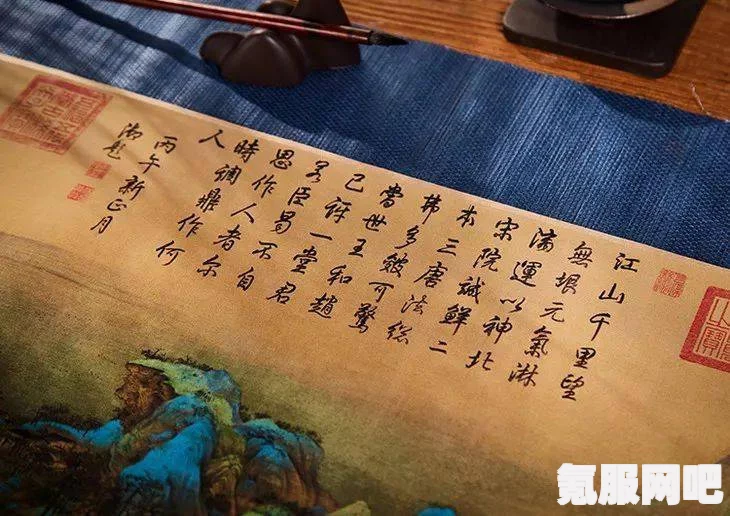 江山千里望
無垠元氣淋
漓運以神北
宋院誠鮮二
本三唐法総
弗多皴可驚
當世王和趙
已訝一堂君
若臣曷不自
思作人者尔
時調鼎作何
人
丙午新正月
御題
氪服网吧